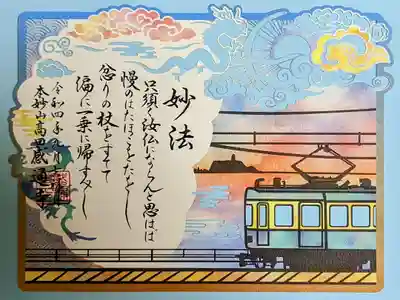 妙法
只須く汝仏にならんと思はば
慢のはたほこをたをし
忿りの杖をすてて
偏に一乗に帰すべし
令和四年九月
本妙山高